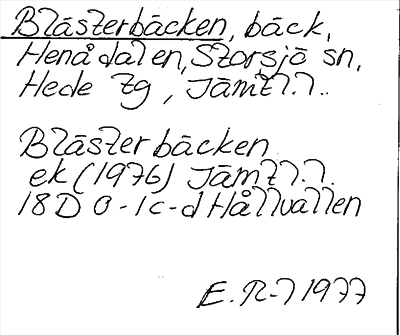 Blästerbäcken, bäck,
Henådalen, Storsjö sn,
Hede tg, Jämtl.l..
Blästerbäcken
ek (1976) Jämtl.l.
18D 0-1c-d Hållvallen
E.R-l 1977